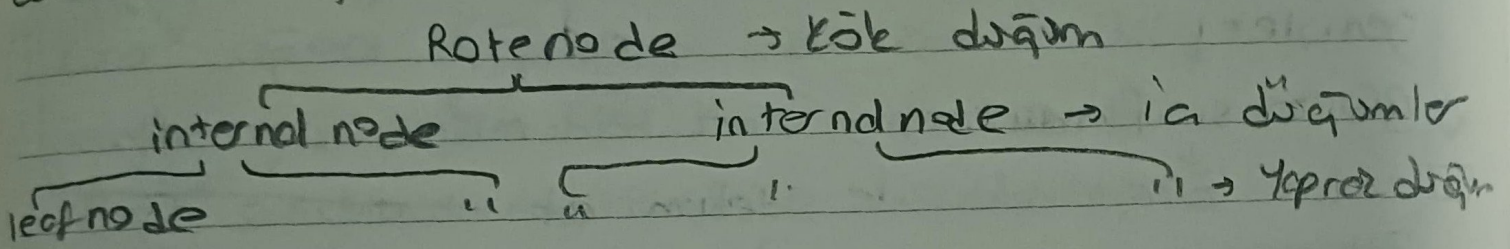 Rote node → kök düğüm
internal node internal node → iç düğümler
leaf node " " " → Yaprak düğüm